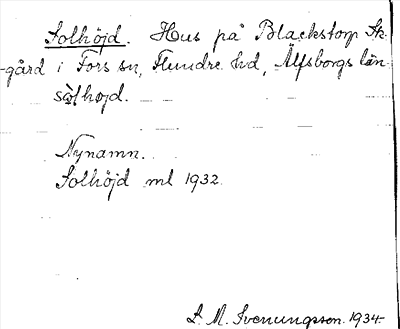 Solhöjd. Hus på Blackstorp Sk-
-gård i Fors sn, Flundre hd, Älfsborgs län
sòlhøjd.
Nynamn.
Solhöjd ml 1932.
L. M. Svenungsson. 1934.